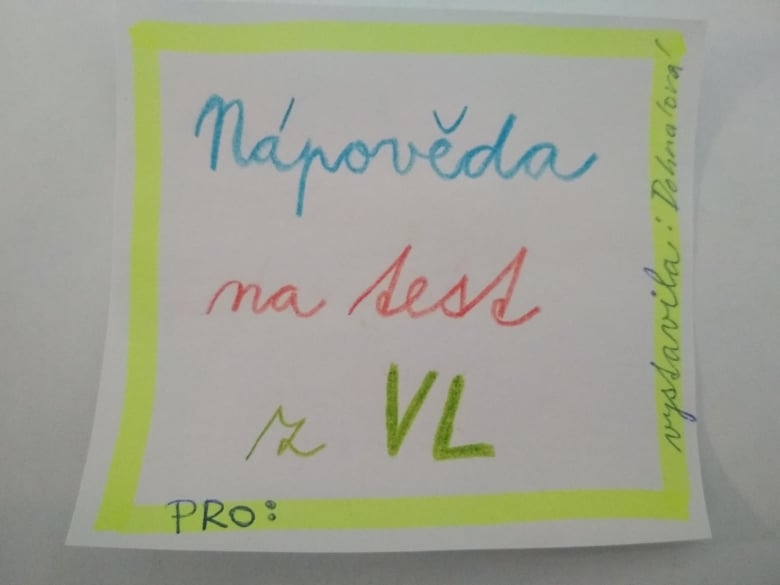 Nápověda
na test
z VL
PRO:
vystavila: Dohnalová